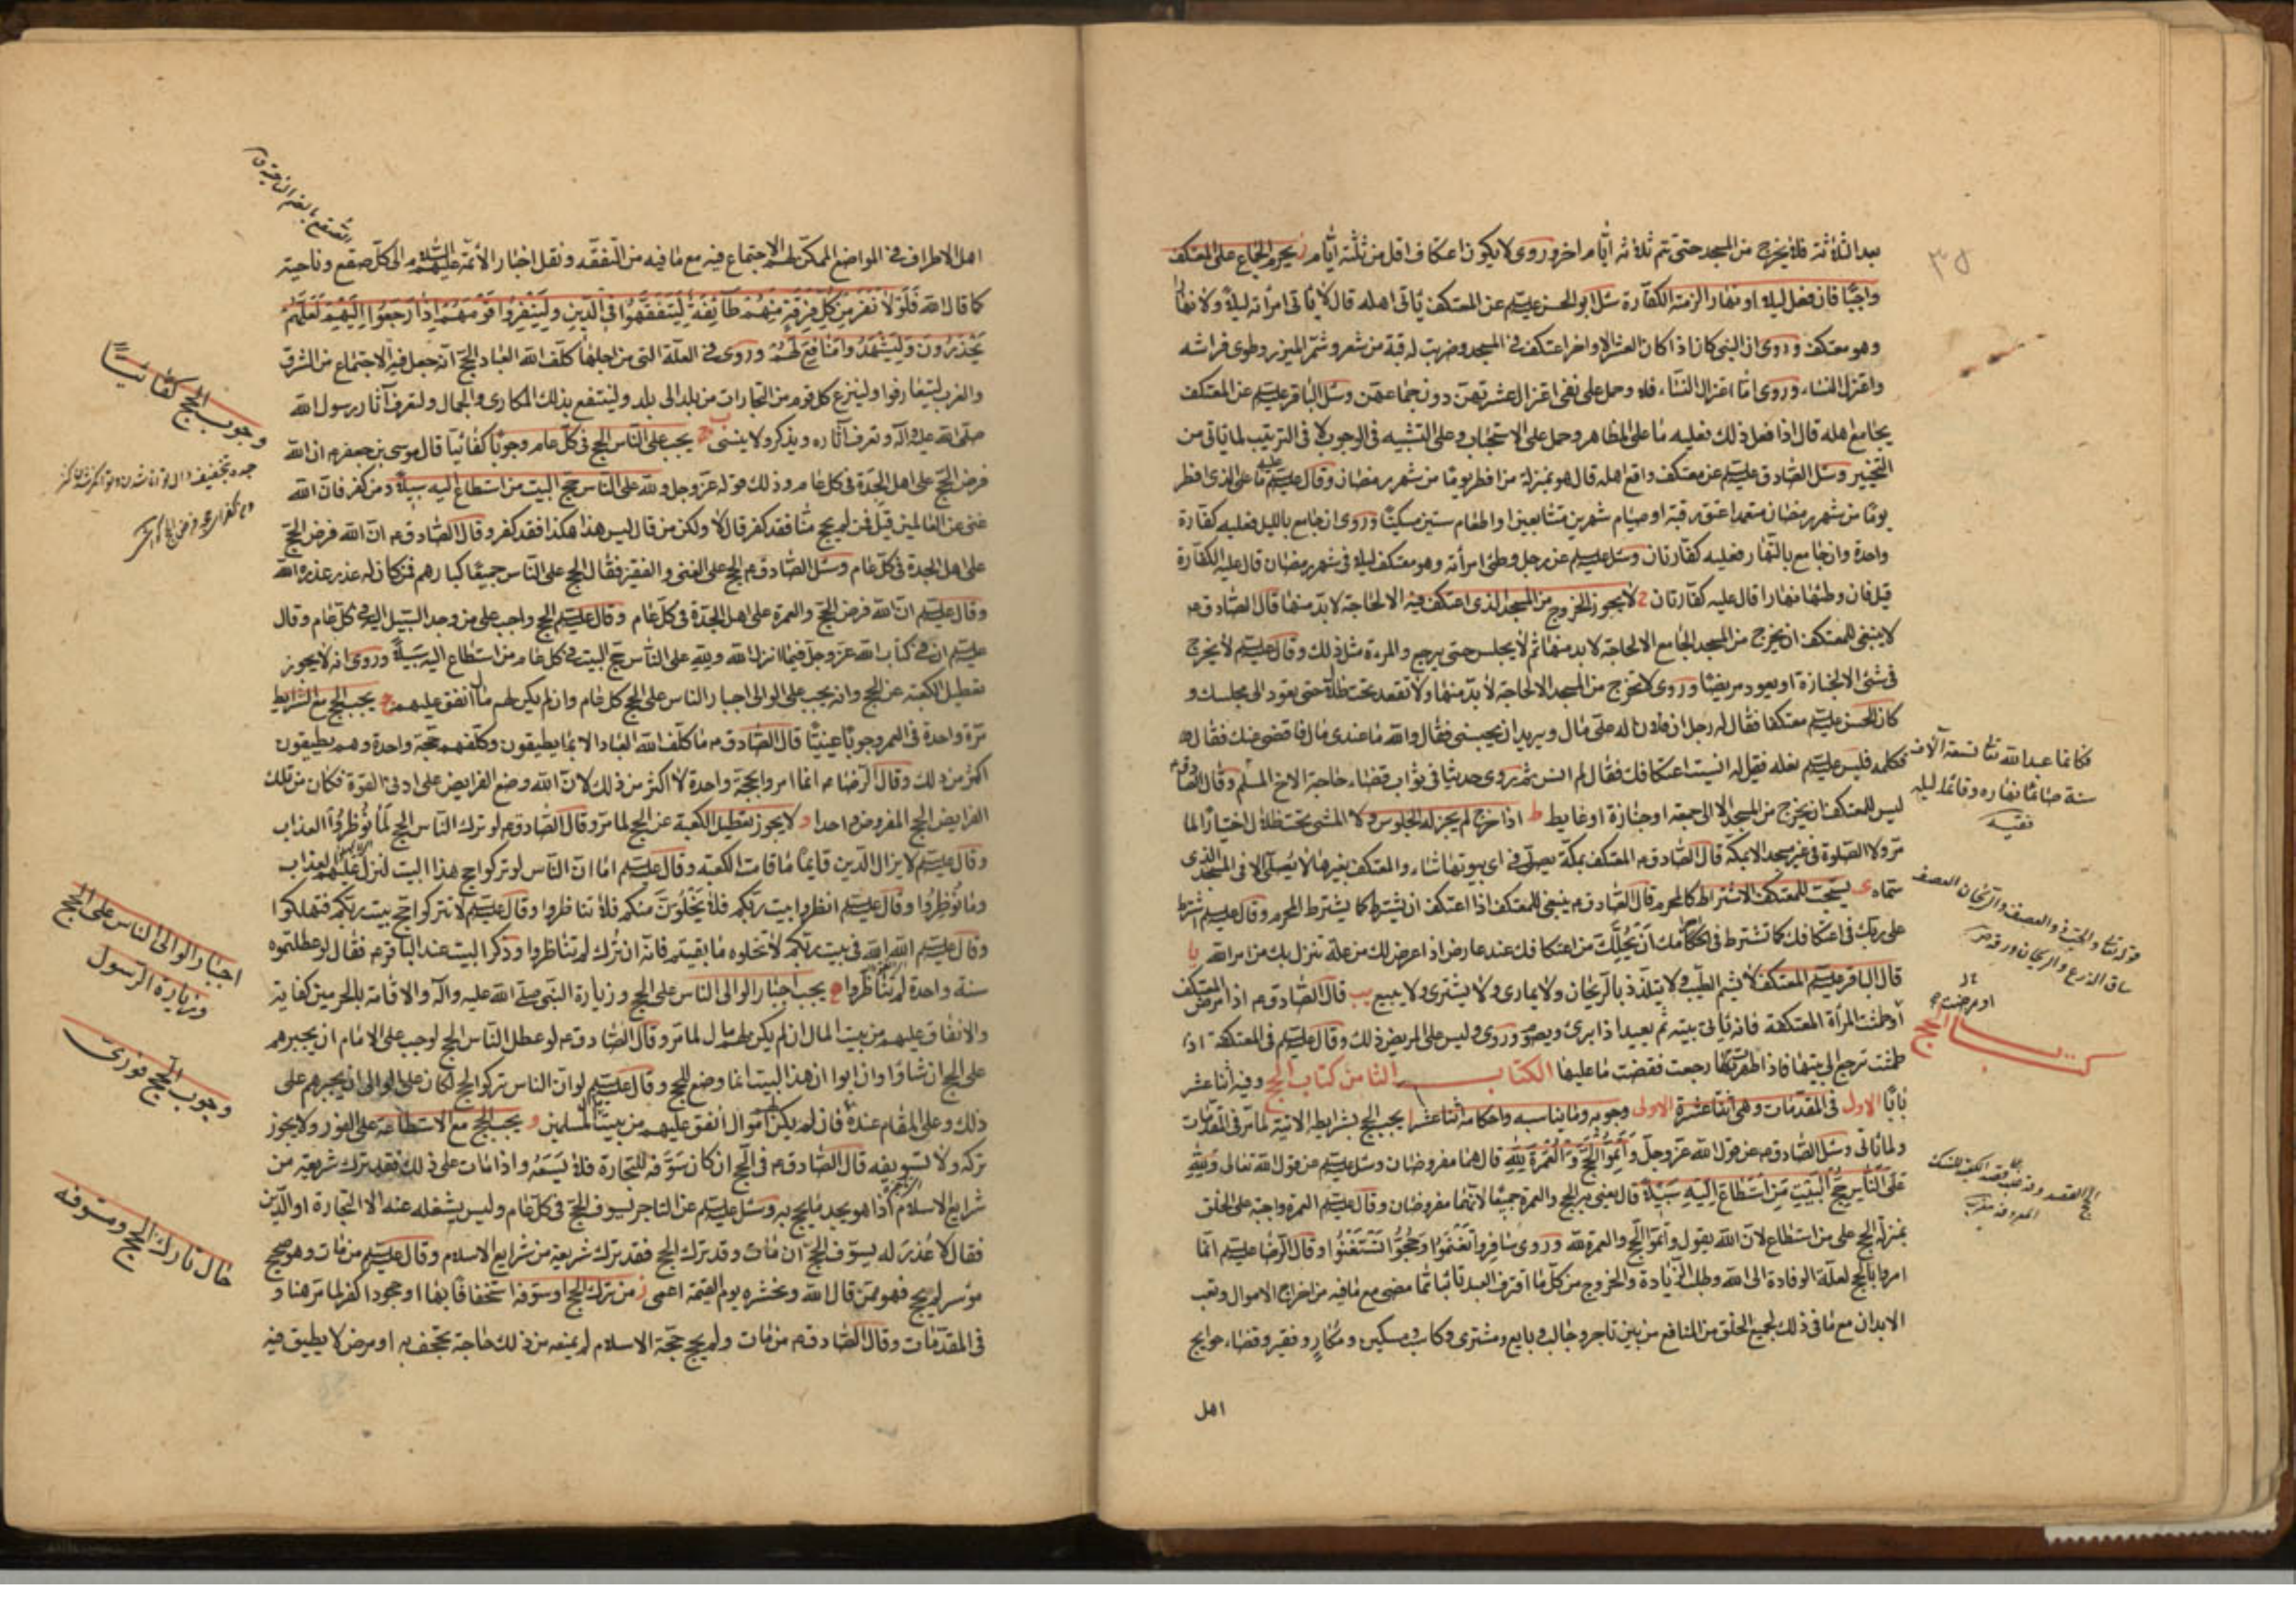 بعد الثلاثة فلا يخرج من المسجد حتى تتم ثلاثة ايام اخر وروى لا يكون اعتكاف اقل من ثلثة ايام ز يحرم الجماع على المعتكف
واجبا فان فعل ليلا او نهارا لزمته الكفارة سئل ابو الحسن عليه السلم عن المعتكف ياتى اهله قال لا ياتى امراته ليلا ولا نهارا
وهو معتكف وروى ان النبى كان اذا كان العشر الاواخر اعتكف فى المسجد وضربت له قبة من شعر وشمر الميزر وطوى فراشه
واعتزل النساء وروى اما اعتزال النساء فلا وحمل على نفى اعتزال عشرتهن دون جماعهن وسئل الباقر عليه السلم عن المعتكف
يجامع اهله قال اذا فعل ذلك فعليه ما على المظاهر وحمل على الاستحباب وعلى التشبيه فى الوجوب لا فى الترتيب لما ياتى من
التخيير وسئل الصادق عليه السلم عن معتكف واقع اهله قال هو بمنزلة من افطر يوما من شهر رمضان وقال عليه السلم عليه ما على الذى افطر
يوما من شهر رمضان متعمدا عتق رقبة او صيام شهرين متتابعين او اطعام ستين مسكينا وروى ان جامع بالليل فعليه كفارة
واحدة وان جامع بالنهار فعليه كفارتان وسئل عليه السلم عن رجل وطئ امرأته وهو معتكف ليلا فى شهر رمضان قال عليه الكفارة
قيل فان وطئها نهارا قال عليه كفارتان ح لا يجوز الخروج من المسجد الذى اعتكف فيه الا لحاجة لا بد منها قال الصادق م
لا ينبغى للمعتكف ان يخرج من المسجد الجامع الا لحاجة لا بد منها ثم لا يجلس حتى يرجع والمرءة مثل ذلك وقال عليه السلم لا يخرج
فى شئ الا لجنازة او يعود مريضا وروى لا تخرج من المسجد الا لحاجة لا بد منها ولا تقعد تحت ظلال حتى تعود الى مجلسك و
كان الحسن عليه السلم معتكفا فقال له رجل ان فلان له على مال ويريد ان يحبسنى فقال والله ما عندى مال فاقضى عنك فقال له
فكلمه فلبس عليه السلم نعله فقيل له انسيت اعتكافك فقال لم انس ثم روى حديثا فى ثواب قضاء حاجة الاخ المسلم وقال الصادق م
ليس للمعتكف ان يخرج من المسجد الا الى جمعة او جنازة او غايط ط اذا خرج لم يجز له الجلوس ولا المشى تحت ظلال اختيارا لما
مر ولا الصلوة فى غير مسجد الا بمكة قال الصادق م المعتكف بمكة يصلى فى اى بيوتها شاء والمعتكف بغيرها لا يصلى الا فى المسجد الذى
سماه ى يستحب للمعتكف الاشتراط كالمحرم قال الصادق م ينبغى للمعتكف اذا اعتكف ان يشترط كما يشترط المحرم وقال عليه السلم اشترط
على ربك فى اعتكافك كما تشترط فى احرامك ان يحلك من اعتكافك عند عارض اذا عرض لك من علة تنزل بك من امر الله يا
قال الباقر عليه السلم المعتكف لا يشم الطيب ولا يتلذذ بالريحان ولا يمارى ولا يشترى ولا يبيع يب قال الصادق م اذا مرض المعتكف
او طمثت المرأة المعتكفة فانه ياتى بيته ثم يعيد اذا برئ ويصوم وروى وليس على المريض ذلك وقال عليه السلم فى المعتكفة اذا
طمثت ترجع الى بيتها فاذا طهرت رجعت فقضت ما عليها الكتاب الثامن كتاب الحج وفيه اثنا عشر
بابا الاول فى المقدمات وهى اثنا عشرة الاولى وجوبه وما يناسبه واحكامه اثنا عشر ا يجب الحج بشرايطه الاتية لما مر فى المقدمات
ولما ياتى وسئل الصادق م عن قول الله عز وجل واتموا الحج والعمرة لله قال هما مفروضان وسئل عليه السلم عن قول الله تعالى ولله
على الناس حج البيت من استطاع اليه سبيلا قال يعنى به الحج والعمرة جميعا لانهما مفروضان وقال عليه السلم العمرة واجبة على الخلق
بمنزلة الحج على من استطاع لان الله يقول واتموا الحج والعمرة لله وروى سافروا تغنموا وحجوا تستغنوا وقال الرضا عليه السلم انما
امروا بالحج لعلة الوفادة الى الله وطلب الزيادة والخروج من كل ما اقترف العبد تائبا مما مضى مع ما فيه من اخراج الاموال وتعب
الابدان مع ما فى ذلك لجميع الخلق من المنافع من بين تاجر وجالب وبايع ومشترى وكاسب ومسكين ومكار وفقير وقضاء حوايج
اهل
فكانما عبد الله تعالى تسعة آلاف
سنة صائما نهاره وقائما ليله
فقيه
او مرضت
كتاب الحج
اهل الاطراف فى المواضع الممكن لهم الاجتماع فيه مع ما فيه من التفقه ونقل اخبار الأئمة عليهم السلم الى كل صقع وناحية
كما قال الله فلولا نفر من كل فرقة منهم طائفة ليتفقهوا فى الدين ولينذروا قومهم اذا رجعوا اليهم لعلهم
يحذرون وليشهدوا منافع لهم وروى فى العلة التى من اجلها كلف الله العباد الحج انه جعل فيه الاجتماع من الشرق
والغرب ليتعارفوا ولينزع كل قوم من التجارات من بلد الى بلد ولينتفع بذلك المكارى والجمال ولتعرف آثار رسول الله
صلى الله عليه وآله وتعرف آثاره ويذكر ولا ينسى ب يجب على الناس الحج فى كل عام وجوبا كفائيا قال موسى بن جعفر م ان الله
فرض الحج على اهل الجدة فى كل عام وذلك قوله عز وجل ولله على الناس حج البيت من استطاع اليه سبيلا ومن كفر فان الله
غنى عن العالمين قيل فمن لم يحج منا فقد كفر قال لا ولكن من قال ليس هذا هكذا فقد كفر وقال الصادق م ان الله فرض الحج
على اهل الجدة فى كل عام وسئل الصادق م الحج على الغنى والفقير فقال الحج على الناس جميعا كبارهم فمن كان له عذر عذره الله
وقال عليه السلم ان الله فرض الحج والعمرة على اهل الجدة فى كل عام وقال عليه السلم الحج واجب على من وجد السبيل اليه فى كل عام وقال
عليه السلم ان فى كتاب الله عز وجل فيما انزل الله ولله على الناس حج البيت فى كل عام من استطاع اليه سبيلا وروى انه لا يجوز
تعطيل الكعبة عن الحج وانه يجب على الوالى اجبار الناس على الحج كل عام وان لم يكن لهم مال انفق عليهم ج يجب الحج مع الشرايط
مرة واحدة فى العمر وجوبا عينيا قال الصادق م ما كلف الله العباد الا ما يطيقون وكلفهم حجة واحدة وهم يطيقون
اكثر من ذلك وقال الرضا م انما امروا بحجة واحدة لا اكثر من ذلك لان الله وضع الفرايض على ادنى القوة فكان من تلك
الفرايض الحج المفروض واحدا د لا يجوز تعطيل الكعبة عن الحج لما مر وقال الصادق م لو ترك الناس الحج لما نوظروا العذاب
وقال عليه السلم لا يزال الدين قايما ما قامت الكعبة وقال عليه السلم اما ان الناس لو تركوا حج هذا البيت لنزل عليهم العذاب
وما نوظروا وقال عليه السلم انظروا بيت ربكم فلا يخلون منكم فلا تناظروا وقال عليه السلم لا تتركوا حج بيت ربكم فتهلكوا
وقال عليه السلم الله الله فى بيت ربكم لا تخلوه ما بقيتم فانه ان ترك لم تناظروا وذكر البيت عند الباقر م فقال لو عطلتموه
سنة واحدة لم تناظروا ه يجب اجبار الوالى الناس على الحج وزيارة النبى صلى الله عليه وآله والاقامة بالحرمين كفاية
والانفاق عليهم من بيت المال ان لم يكن لهم مال لما مر وقال الصادق م لو عطل الناس الحج لوجب على الامام ان يجبرهم
على الحج ان شاؤا وان ابوا ان هذا البيت انما وضع للحج وقال عليه السلم لو ان الناس تركوا الحج لكان على الوالى ان يجبرهم على
ذلك وعلى المقام عنده فان لم يكن لهم اموال انفق عليهم من بيت مال المسلمين و يجب الحج مع الاستطاعة على الفور ولا يجوز
تركه ولا تسويفه قال الصادق م فى الحج ان كان سوفه للتجارة فلا يسعه واذا مات على ذلك فقد ترك شريعة من
شرايع الاسلام اذا هو يجد ما يحج به وسئل عليه السلم عن التاجر يسوف الحج فى كل عام وليس يشغله عنه الا التجارة او الدين
فقال لا عذر له يسوف الحج ان مات وقد ترك الحج فقد ترك شريعة من شرايع الاسلام وقال عليه السلم من مات وهو صحيح
موسر لم يحج فهو ممن قال الله ونحشره يوم القيمة اعمى ز من ترك الحج او سوفه استخفافا بها او جحودا كفر لما مر هنا و
فى المقدمات وقال الصادق م من مات ولم يحج حجة الاسلام لم يمنعه من ذلك حاجة تجحف به او مرض لا يطيق فيه
وجوب الحج كفائيا
اجبار الوالى الناس على الحج
وزيارة الرسول
وجوب الحج فورى
حال تارك الحج ومسوفه